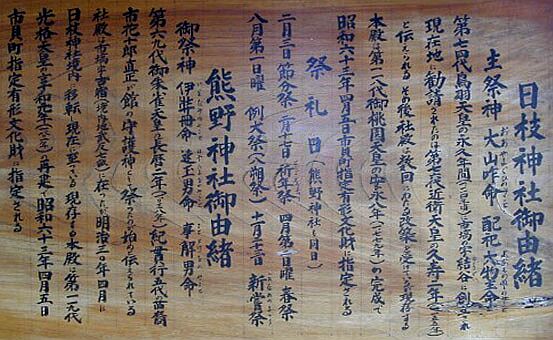 日枝神社御由緒
主祭神 大山咋命 配祀 大物主命
第七四代鳥羽天皇の永久年間
現在地に勧請されたのは第七六代近衛天皇の久寿二年(一一五五年)
と伝えられる その後社殿は数回にわたる
本殿は第一一八代後桃園天皇の安永六年(一七七七年)の完成で
昭和六十三年四月五日市貝町指定有形文化財に指定される
祭礼日(熊野神社も同日)
二月三日 節分祭 二月十七日 祈年祭 四月第一日曜 春祭
八月第一日曜 例大祭(八朔祭) 十一月二十三日 新嘗祭
熊野神社御由緒
御祭神 伊弉冊命 速玉男命 事解男命
第六九代御朱雀天皇の長暦二年
市花十郎直正が館の守護神として祭ったのが始めと伝えられている
社殿は 明治二〇年四月に
日枝神社境内に移転し現在に至っている 現存する本殿は第一一九代
光格天皇の享和三年(一八〇三年)の再建で 昭和六十三年四月五日
市貝町指定有形文化財に指定される